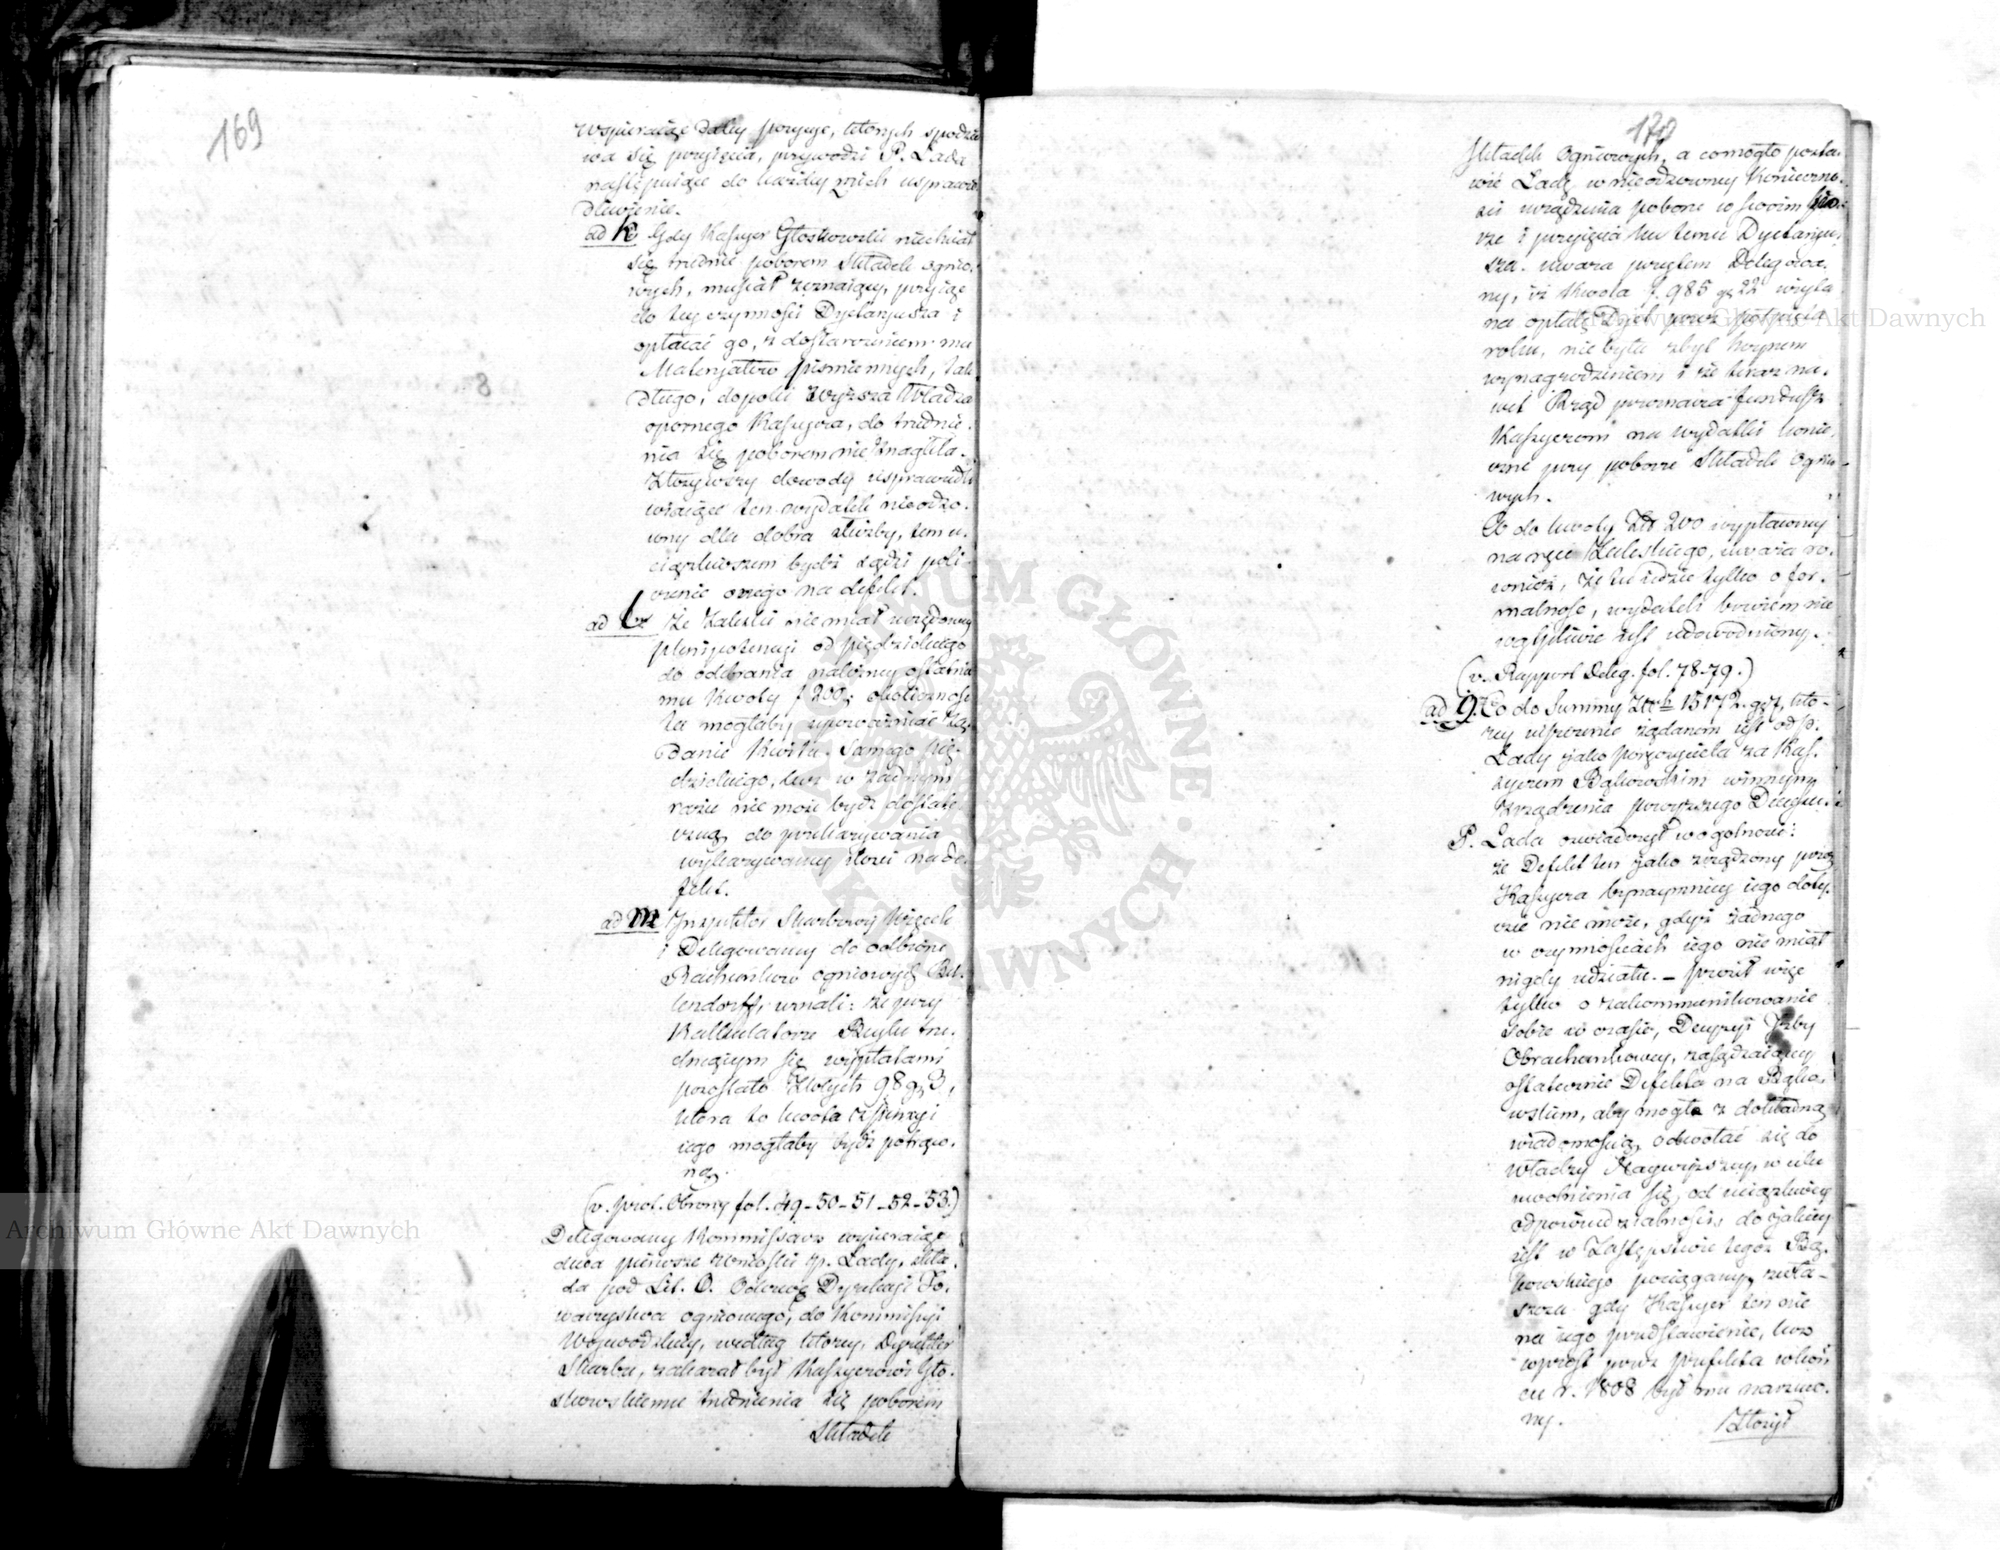 169
Wspieraiąc daley pozycye, których spodzie
wa się przyięcia, przywodzi P. Łada
następuiące do każdey z nich usprawie
dliwienie.
ad k Gdy Kassyer Głoskowski niechciał
się trudnić poborem Składek ognio-
wych, musiał znaiący, przyiąć
do tey czynności Dyetaryusza i
opłacać go, z dostarczeniem mu
Materyałów piśmiennych, tak
długo, dopóki Wyższa Władza
opornego Kassyera, do trudnie-
nia się poborem nie znagliła.
Złożywszy dowody usprawiedli
wiaiące ten wydatek nieodzo-
wny dla dobra służby, tem u-
ciążliwszem bydź sądzi poli-
czenie onego na defekt.
ad l Że Zaleski nie miał urzędowey
plenipotencyi od Pięzdzickiego
do odebrania należney ostatnie
mu kwoty f 200, okoliczność
ta mogłaby upoważniać żą-
danie kwitu samego Pię-
dzickiego, lecz w żadnym
razie nie może bydź dostate
czną do przekazywania
wykazywaney ilości na de-
fekt.
ad m Inspektor Skarbowy Kizele
i Delegowany do odbioru
Rachunków ogniowych Bel-
lendorff, uznali: że przy
Kalkulatorze Rzylu tru-
dniącym się wypłatami
pozostało Złotych 98 g 3,
która to kwota z Pensyi
iego mogłaby bydź potrąco-
ną.
(v. prot. Obrony fol. 49-50-51-52-53.)
Delegowany Kommissarz wspieraiąc
dwa pierwsze wnioski P. Łady, skła-
da pod Lit. O. Odezwę Dyrekcyi To-
warzystwa ogniowego, do Kommissyi
Woiewódzkiey, według którey, Dyrektor
Skarbu, zakazał był Kassyerowi Gło-
skowskiemu trudnienia się poborem
Składek
8
170
Składek Ogniowych, a co mogło posta-
wić Ładę w nieodzowney konieczno-
ści urządzenia poboru w swoim Biu-
rze i przyięcia ku temu Dyetaryu-
sza. Uważa przytem Delegowa-
ny, iż kwota f. 985 g 22 użyta
na opłatę Dyet przez półpięta
roku, nie była zbyt hoynem
wynagrodzeniem i że teraz na-
wet Rząd przeznacza fundusz
Kassyerom na wydatki konie-
czne przy poborze Składek Ognio-
wych.
Co do kwoty Złt 200 wypłaconey
na ręce Zaleskiego, uważa ró-
wnież, że tu idzie tylko o for-
malność, wydatek bowiem nie
wątpliwie iest udowodniony.
(v. Rapport Deleg. fol. 78-79.)
ad 9. Co do Summy Złch 15172. g 7, któ-
rey uiszczenie żądanem iest od P.
Łady iako poręczyciela za Kas-
syerem Bąkowskim winnym
zrządzenia powyższego Deficytu
P. Łada oświadczył w ogólności:
że Defekt ten iako zrządzony przez
Kassyera bynaymniey iego doty-
czeć nie może, gdyż żadnego
w czynnościach iego nie miał
nigdy udziału. – Prosił więc
tylko o zakommunikowanie
sobie w czasie, Decyzyi Izby
Obrachunkowey, zasądzaiącey
ostatecznie Defekta na Bąko-
wskim, aby mógł z dokładną
wiadomością odwołać się do
Władzy Naywyższey, w celu
uwolnienia się, od uciążliwey
odpowiedzialności, do iakiey
iest w Zastępstwie tegoż Bą-
kowskiego pociągany, zwła-
szcza gdy Kassyer ten nie
na iego przedstawienie, lecz
wprost przez Prefekta w koń
cu r. 1808 był mu narzuco-
ny.
Złożył